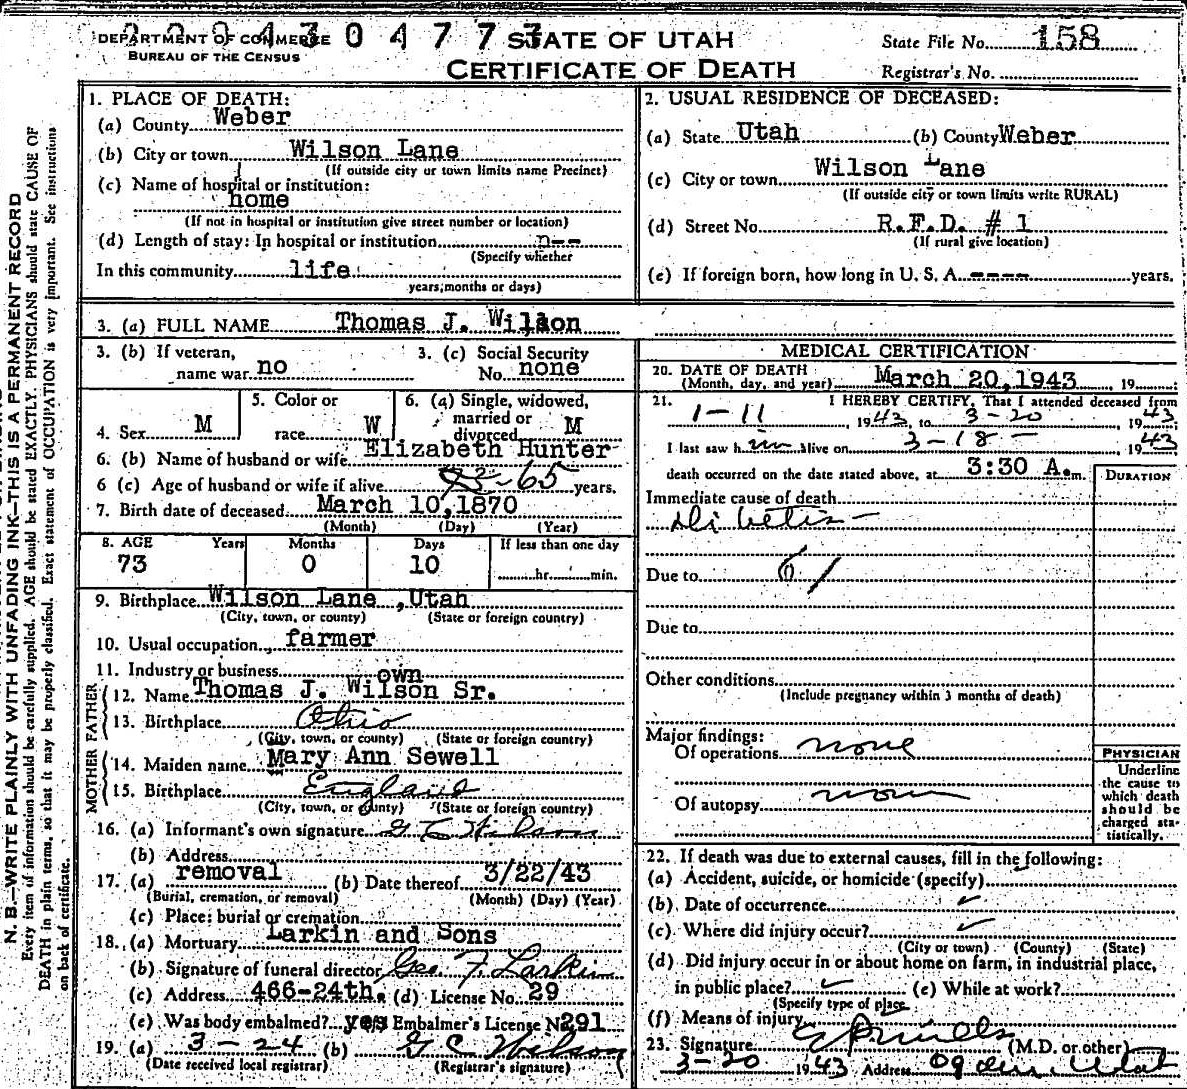 DEPARTMENT OF COMMERCE
BUREAU OF THE CENSUS
STATE OF UTAH
CERTIFICATE OF DEATH
State File No. 158
Registrar's No.
N. B.—WRITE PLAINLY WITH UNFADING INK—THIS IS A PERMANENT RECORD
Every item of information should be carefully supplied. AGE should be stated EXACTLY. PHYSICIANS should state CAUSE OF
DEATH in plain terms, so that it may be properly classified. Exact statement of OCCUPATION is very important. See instructions
on back of certificate.
1. PLACE OF DEATH:
(a) County Weber
(b) City or town Wilson Lane
(If outside city or town limits name Precinct)
(c) Name of hospital or institution:
home
(If not in hospital or institution give street number or location)
(d) Length of stay: In hospital or institution n--
(Specify whether
In this community life
years, months or days)
2. USUAL RESIDENCE OF DECEASED:
(a) State Utah (b) County Weber
(c) City or town Wilson Lane
(If outside city or town limits write RURAL)
(d) Street No. R.F.D. # 1
(If rural give location)
(e) If foreign born, how long in U. S. A. ---- years.
3. (a) FULL NAME Thomas J. Wilson
3. (b) If veteran, name war no
3. (c) Social Security No. none
4. Sex M
5. Color or race W
6. (a) Single, widowed, married or divorced M
6. (b) Name of husband or wife Elizabeth Hunter
6 (c) Age of husband or wife if alive 65 years.
7. Birth date of deceased March 10,1870
(Month) (Day) (Year)
8. AGE Years Months Days If less than one day
73 0 10 hr. min.
9. Birthplace Wilson Lane ,Utah
(City, town, or county) (State or foreign country)
10. Usual occupation farmer
11. Industry or business own
FATHER
12. Name Thomas J. Wilson Sr.
13. Birthplace Ohio
(City, town, or county) (State or foreign country)
MOTHER
14. Maiden name Mary Ann Sewell
15. Birthplace England
(City, town, or county) (State or foreign country)
16. (a) Informant's own signature G C Wilson
(b) Address
17. (a) removal (b) Date thereof 3/22/43
(Burial, cremation, or removal) (Month) (Day) (Year)
(c) Place: burial or cremation
18. (a) Mortuary Larkin and Sons
(b) Signature of funeral director Geo. F. Larkin
(c) Address 466-24th. (d) License No. 29
(e) Was body embalmed? yes Embalmer's License No 291
19. (a) 3-24 (b) G C Wilson
(Date received local registrar) (Registrar's signature)
MEDICAL CERTIFICATION
20. DATE OF DEATH
(Month, day, and year) March 20,1943, 19
21. I HEREBY CERTIFY, That I attended deceased from
1-11, 1943, to 3-20, 1943
I last saw him alive on 3-18-, 1943
death occurred on the date stated above, at 3:30 A. m.
DURATION
Immediate cause of death
Dibetis -
Due to
Due to
Other conditions
(Include pregnancy within 3 months of death)
Major findings:
Of operations none
Of autopsy none
PHYSICIAN
Underline
the cause to
which death
should be
charged sta-
tistically.
22. If death was due to external causes, fill in the following:
(a) Accident, suicide, or homicide (specify)
(b) Date of occurrence ✓
(c) Where did injury occur? ✓
(City or town) (County) (State)
(d) Did injury occur in or about home on farm, in industrial place,
in public place? ✓ (e) While at work?
(Specify type of place
(f) Means of injury
23. Signature (M.D. or other)
3-20 1943 Address Ogden Utah